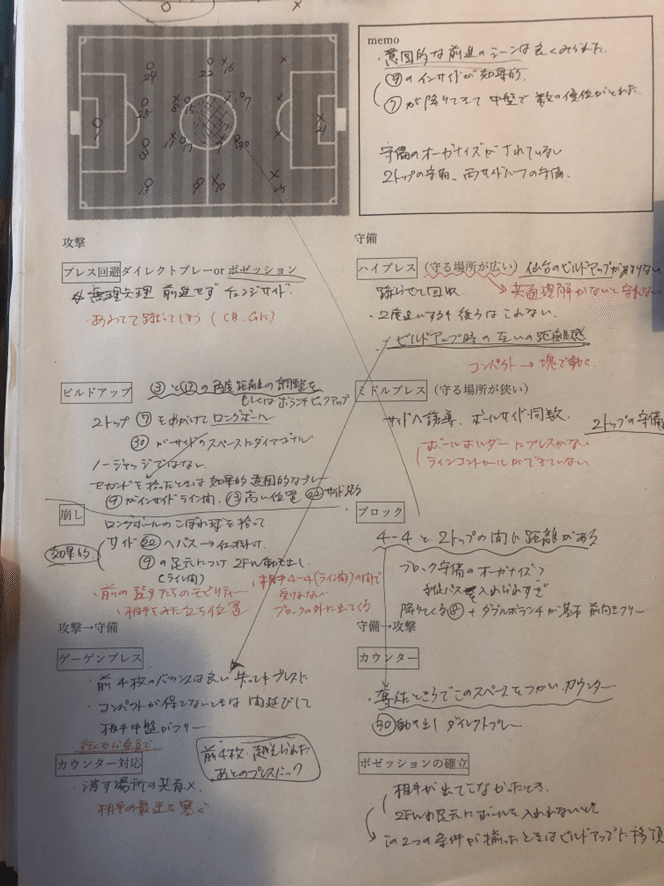 memo
・意図的な前進のシーンは良くみられた
⑨のインサイドが効果的.
⑦が降りてきて中盤で数の優位がとれた.
守備のオーガナイズがされていない
2トップの守備、両サイドハーフの守備.
攻撃
プレス回避 ダイレクトプレーor ポゼッション
無理矢理 前進せず チェンジサイド.
・あわてて蹴ってしまう (CB、GK)
守備
ハイプレス (守る場所が広い) 仙台のビルドアップがあまりない
蹴らせて回収
→共通理解がないと守れない
・2度追いするも後ろはこれない.
ビルドアップ時の互いの距離感
コンパクト→塊で動く.
ビルドアップ
の角度 距離の調整を
もしくはボランチピックアップ
2トップ ⑦をめがけてロングボール
㉚がサイドのスペースにダイアゴナル
ノージャッジではない.
セカンドを拾ったときは効果的 意図的なプレー
⑨がインサイドライン間、高い位置 ㉒サイド
ミドルプレス (守る場所が狭い)
サイドへ誘導、ボールサイド同数.
2トップの守備
ボールホルダーにプレスがない
ラインコントロールができていない
崩し
ロングボールのこぼれ球を拾って
効果的
サイド㉒へパス→仕掛け.
⑨の足元につけ 2FW動き出し
(ライン間)
・前の選手たちのモビリティー
・相手をみた立ち位置
相手4-4(ライン間)の間で
受けれない
ブロックの外に出てくる
ブロック
4-4と2トップの間に距離がある
ブロック守備のオーガナイズ?
縦パスを入れられすぎ
降りてくる + ダブルボランチが基本 前向きフリー
攻撃→守備
ゲーゲンプレス
・前4枚のバランスは良い 失ってもプレスに
・コンパクトが保てないときは間延びして
相手中盤がフリー
行くなら全員で
前4枚、越えられた
あとのプレスバック
カウンター対応
消す場所の共有×.
相手の最速を塞ぐ
守備→攻撃
カウンター
・奪ったところでこのスペースをつかいカウンター
㉚動き出し ダイレクトプレー
ポゼッションの確立
相手が出てこなかったとき.
2FWの足元にボールを入れれないとき
この2つの条件が揃ったときはビルドアップに移項